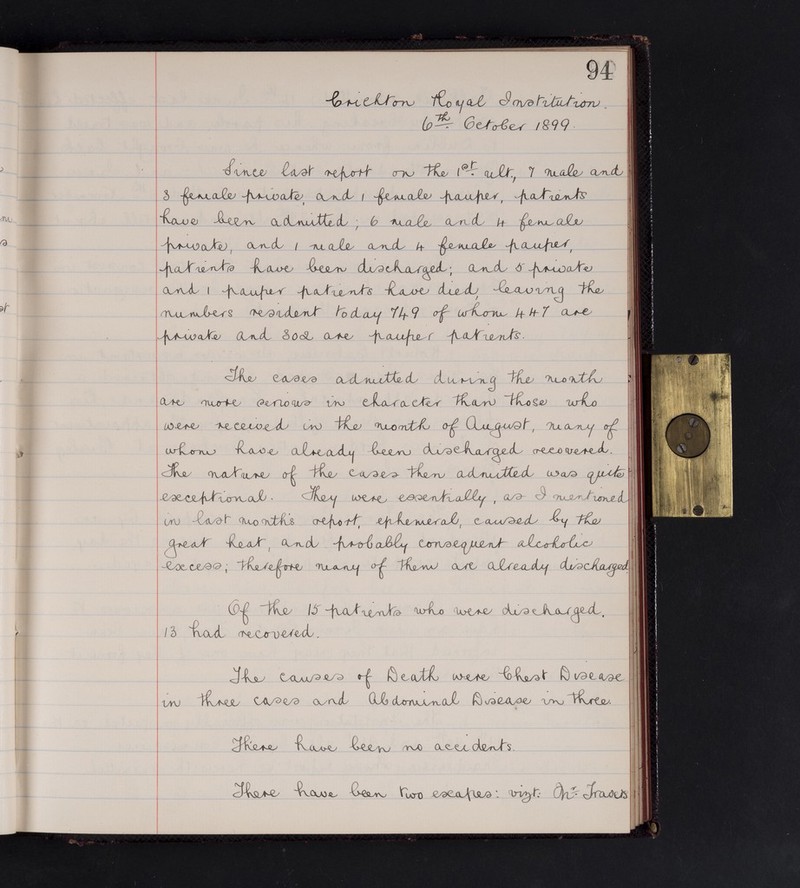 94
Crichton Royal Institution.
6th October 1899.
Since last report on the 1st ult., 7 male and
3 female private, and 1 female pauper, patients
have been admitted; 6 male and 4 female
private, and 1 male and 4 female pauper,
patients have been discharged; and 5 private
and 1 pauper patients have died, leaving the
numbers resident today 749 of whom 447 are
private and 302 are pauper patients.
The cases admitted during the month
are more serious in character than those who
were received in the month of August, many of
whom have already been discharged recovered.
The nature of the cases then admitted was quite
exceptional. They were essentially, as I mentioned
in last month's report, ephemeral, caused by the
great heat, and probably consequent alcoholic
excess; therefore many of them are already discharged
Of the 15 patients who were discharged,
13 had recovered.
The causes of Death were Chest Disease
in three cases and Abdominal Disease in three
There have been no accidents.
There have been two escapes: vizt: Travers